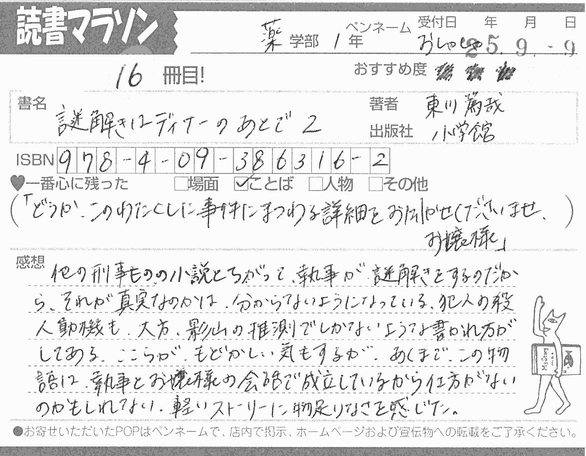 読書マラソン
薬 学部 1 年 ペンネーム おしゃ 受付日 年 月 日
25.9.-9
16 冊目! おすすめ度
書名 謎解きはディナーのあとで 2
著者 東川篤哉
出版社 小学館
ISBN 978-4-09-386316-2
♥一番心に残った □場面 ☑ことば □人物 □その他
(「どうか、このわたくしに事件にまつわる詳細をお聞かせくださいませ、
お嬢様」)
感想
他の刑事ものの小説とちがって、執事が謎解きをするのだか
ら、それが真実なのかは、分からないようになっている。犯人の殺
人動機も、大方、影山の推測でしかないような書かれ方が
してある。ここらが、もどかしい気もするが、あくまで、この物
語は、執事とお嬢様の会話で成立しているから仕方がない
のかもしれない。軽いストーリーに物足りなさを感じた。
●お寄せいただいたPOPはペンネームで、店内で掲示、ホームページおよび宣伝物への転載をご了承ください。